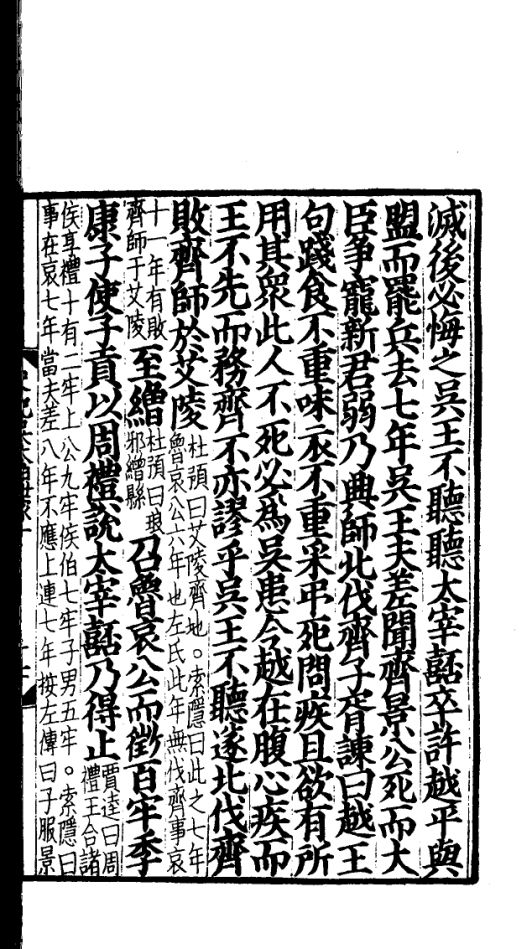 滅後必悔之吳王不聽聽太宰嚭卒許越平與
盟而罷兵去七年吳王夫差聞齊景公死而大
臣爭寵新君弱乃興師北伐齊子胥諫曰越王
句踐食不重味衣不重采弔死問疾且欲有所
用其衆此人不死必爲吳患今越在腹心疾而
王不先而務齊不亦謬乎吳王不聽遂北伐齊
敗齊師於艾陵杜預曰艾陵齊地。索隱曰此之七年魯哀公六年也左氏此年無伐齊事哀
十一年有敗齊師于艾陵至繒杜預曰琅邪繒縣召魯哀公而徵百牢季
康子使子貢以周禮說太宰嚭乃得止賈逵曰周禮王合諸
侯享禮十有二牢上公九牢侯伯七牢子男五牢。索隱曰
事在哀七年當夫差八年不應上連七年按左傳曰子服景